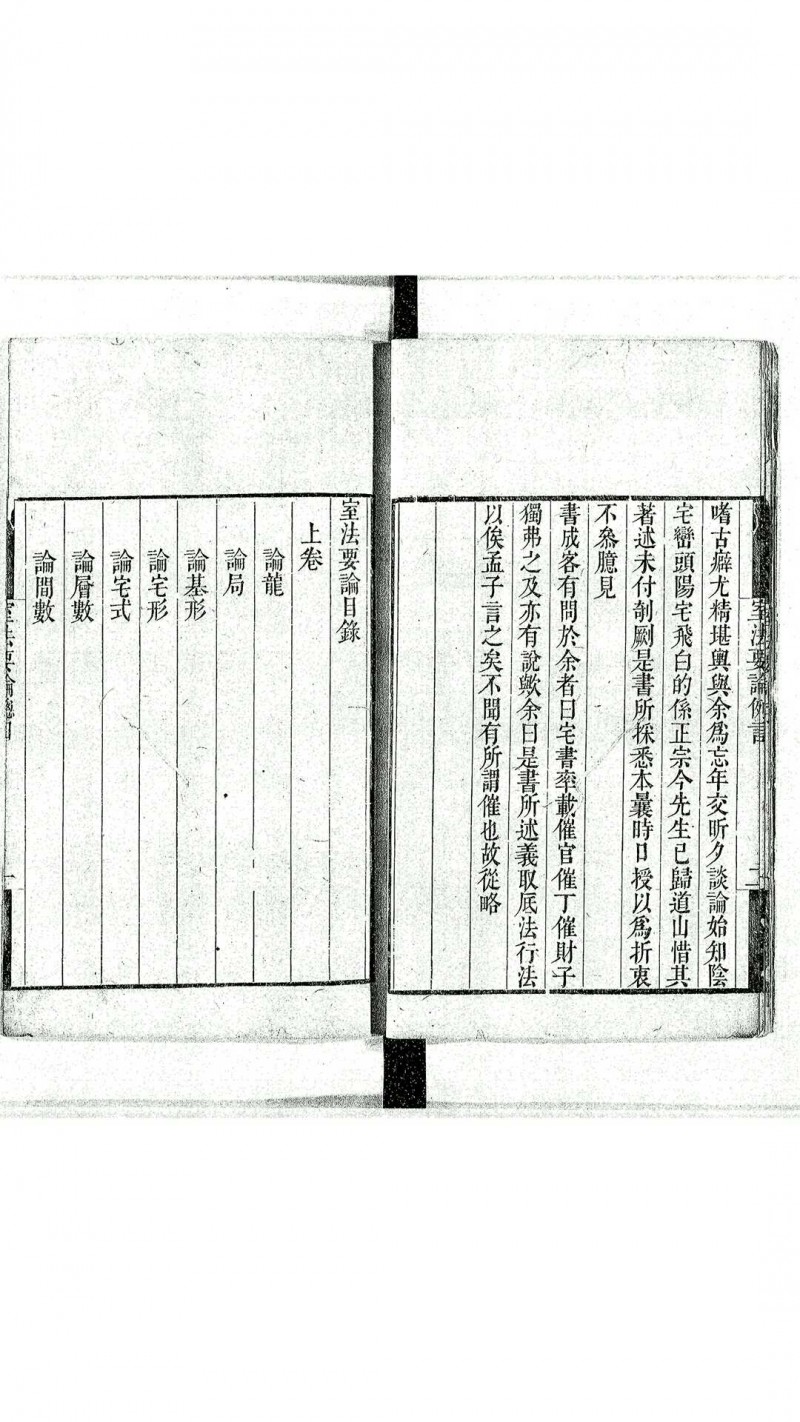 嗜古癖尤精堪輿與余爲忘年交昕夕談論始知陰
宅巒頭陽宅飛白的係正宗今先生已歸道山惜其
著述未付剞劂是書所採悉本曩時口授以爲折衷
不叅臆見
書成客有問於余者曰宅書率載催官催丁催財子
獨弗之及亦有說歟余曰是書所述義取居法行法
以俟孟子言之矣不聞有所謂催也故從略
室法要論例言
二
室法要論目錄
上卷
論龍
論局
論基形
論宅形
論宅式
論層數
論間數
室法要論總目
一